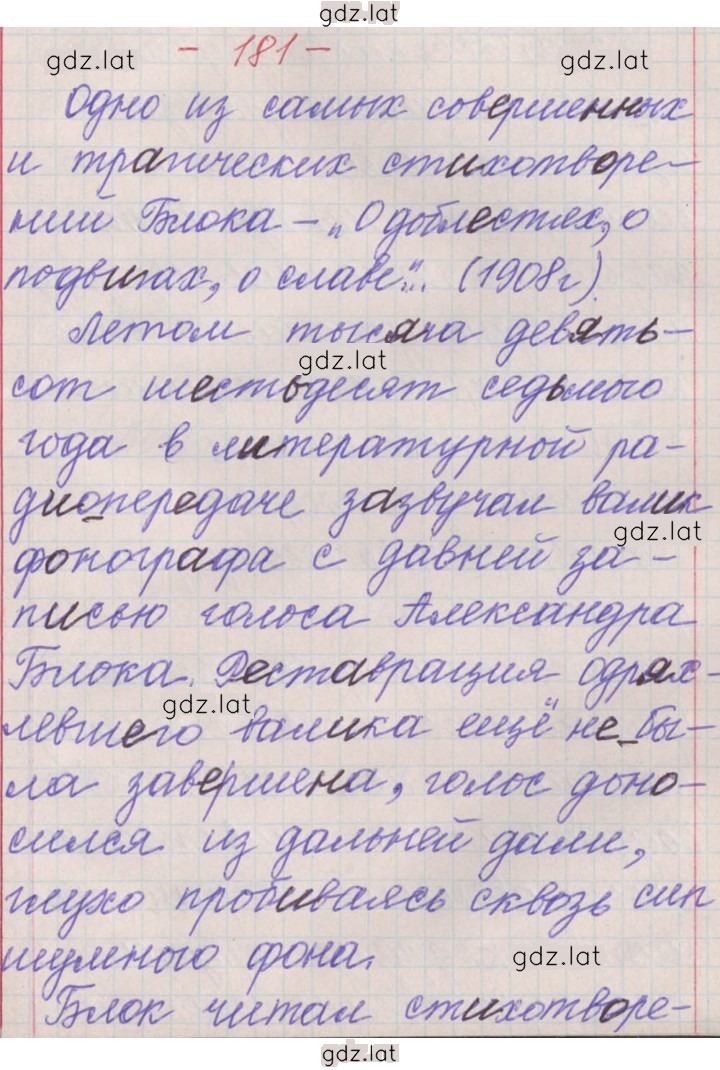 gdz.lat
- 181 -
gdz.lat
gdz.lat
Одно из самых совершенных
и трагических стихотворе-
ний Блока – „О доблестях, о
подвигах, о славе"... (1908г).
Летом тысяча девять-
gdz.lat
сот шестьдесят седьмого
года в литературной ра-
диопередаче зазвучал валик
gdz.lat
фонографа с давней за-
писью голоса Александра
Блока. Реставрация одрях-
gdz.lat
левшего валика ещё не бы-
ла завершена, голос доно-
сился из дальней дали,
глухо пробиваясь сквозь сип
шумного фона.
gdz.lat
Блок читал стихотворе-
gdz.lat